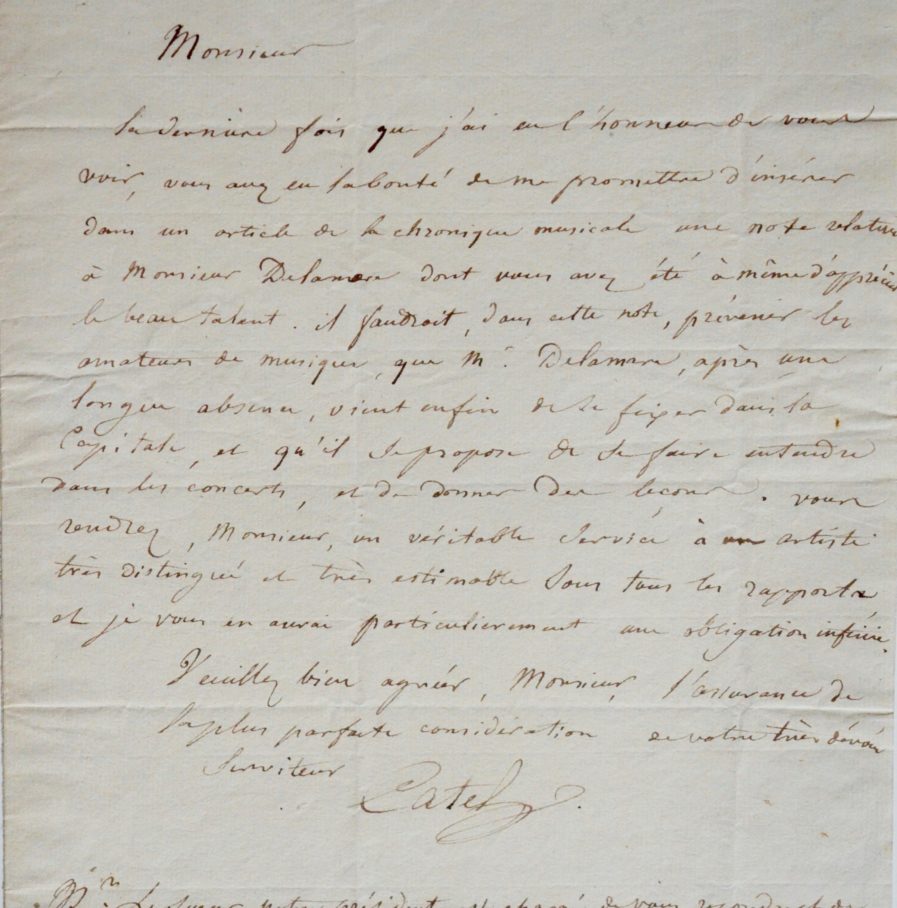 Monsieur
la dernière fois que j'ai eu l'honneur de vous
voir, vous avez eu la bonté de me promettre d'insérer
dans un article de la chronique musicale une note relative
à Monsieur Delamare dont vous avez été à même d'apprécier
le beau talent. il faudroit, dans cette note, prévenir les
amateurs de musique, que Mr. Delamare, après une
longue absence, vient enfin de se fixer dans la
Capitale, et qu'il se propose de se faire entendre
dans les concerts, et de donner des leçons. vous
rendrez, Monsieur, un véritable service à un artiste
très distingué et très estimable sous tous les rapports
et je vous en aurai particulierement une obligation infinie.
Veuillez bien agréer, Monsieur, l'assurance de
la plus parfaite considération de votre très dévoué
Serviteur
Catel.
notre président est chargé de vous